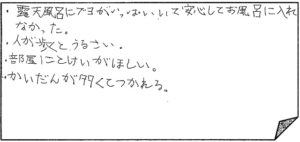 ・露天風呂にブヨがいっぱいいて安心してお風呂に入れ
なかった。
・人が歩くとうるさい。
・部屋にとけいがほしい。
・かいだんが多くてつかれる。